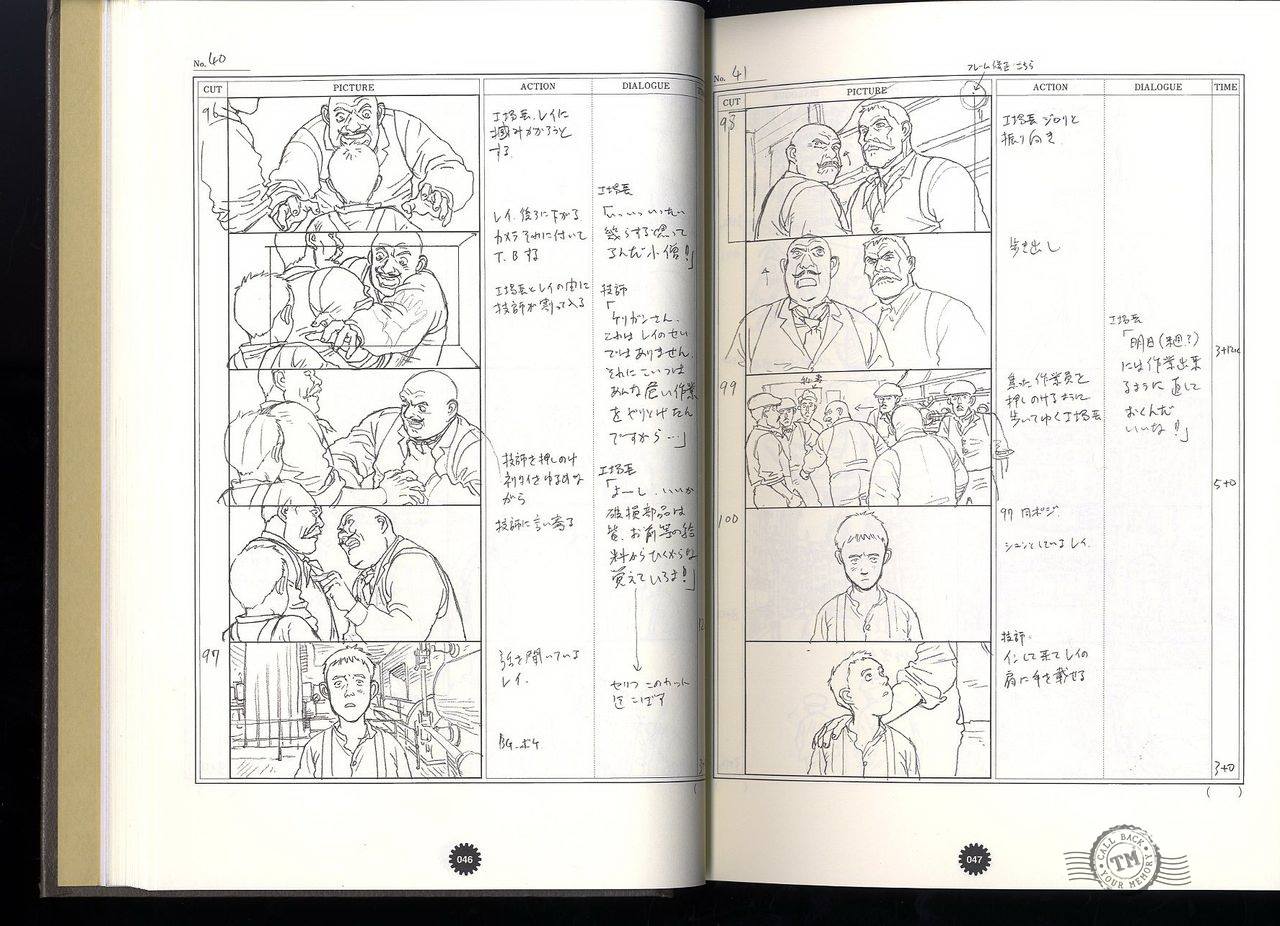 No. 40
CUT
PICTURE
ACTION
DIALOGUE
工場長、レイに
掴みかかろうと
する
レイ、後ろに下がる
カメラそれに付いて
T.Bする
工場長とレイの間に
技師が割って入る
工場長
「いっいっいったい
幾らすると思って
るんだ小僧!」
技師
「
ケリガンさん、
これはレイのせい
ではありません。
それにこいつは
あんな危い作業
をやりとげたん
ですから…」
技師を押しのけ
がら
技師に言い寄る
工場長
「よーし、いいか
破損部品は
皆、お前等の給
料からひくからな
覚えていろよ!」
97
聞いている
レイ.
セリフ このカット
こぼす
BG
046
No. 41
フレーム修正 こちら
CUT
PICTURE
ACTION
DIALOGUE
TIME
98
工場長ジロリと
振り向き
歩き出し
工場長
「明日(来週?)
には作業出来
るように直して
おくんだ
いいな!」
99
作業員を
押しのけるように
歩いてゆく工場長
5+0
100
97 同ポジ
シュンとしているレイ.
技師.
インして来てレイの
肩に手を載せる
3+0
( )
047
CALL BACK
TM
YOUR MEMORY